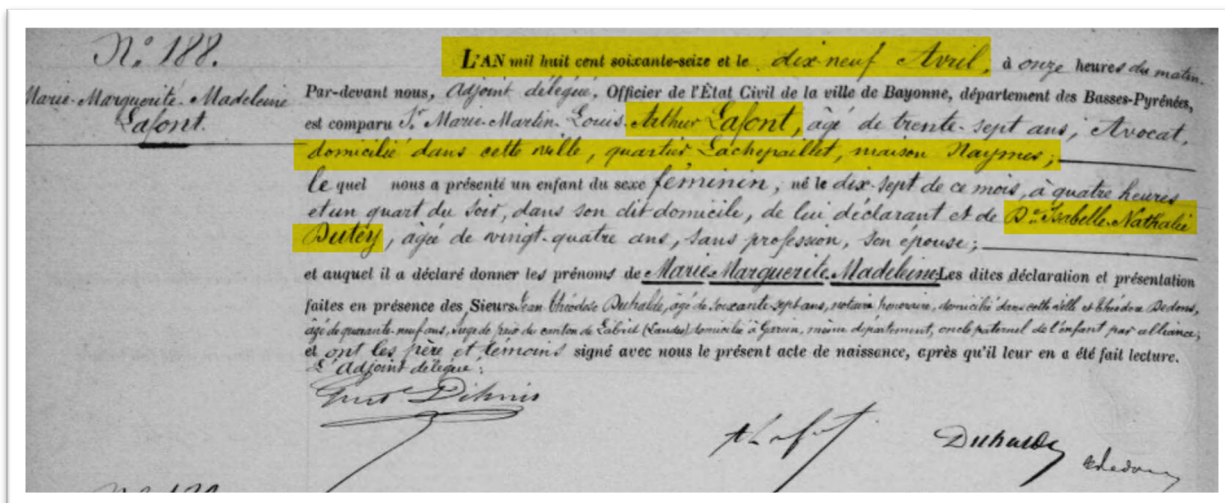 N.° 188.
Marie-Marguerite-Madeleine
Lafont.
L'AN mil huit cent soixante-seize et le dix-neuf Avril, à onze heures du matin.
Par-devant nous, Adjoint délégué, Officier de l'État Civil de la ville de Bayonne, département des Basses-Pyrénées,
est comparu Sr. Marie-Martin-Louis-Arthur Lafont, âgé de trente-sept ans, Avocat,
domicilié dans cette ville, quartier Lachepaillet, maison Naymes;
le quel nous a présenté un enfant du sexe féminin, né le dix-sept de ce mois, à quatre heures
et un quart du soir, dans son dit domicile, de lui déclarant et de De. Isabelle-Nathalie
Dutey, âgée de vingt-quatre ans, sans profession, son épouse;
et auquel il a déclaré donner les prénoms de Marie-Marguerite-Madeleine. Les dites déclaration et présentation
faites en présence des Sieurs Jean Théodore Duhalde, âgé de soixante-sept ans, notaire honoraire, domicilié dans cette ville et Théodore Dedons,
âgé de quarante-neuf ans, Juge de paix du canton de (Landes) domicilié à même département, oncle paternel de l'enfant par alliance;
et ont les père et témoins signé avec nous le présent acte de naissance, après qu'il leur en a été fait lecture.
L'Adjoint délégué:
Duhalde